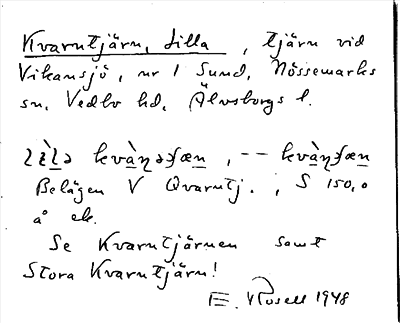 Kvarntjärn, Lilla, tjärn vid
Vikansjö, nr 1 Sund, Nössemarks
sn, Vedbo hd, Älvsborgs l.
lìlə kvàɳəʃæn, -- kvàɳʃæn
Belägen V Qvarntj., S 150,0
å ek.
Se Kvarntjärnen samt
Stora Kvarntjärn!
E. Rosell 1948